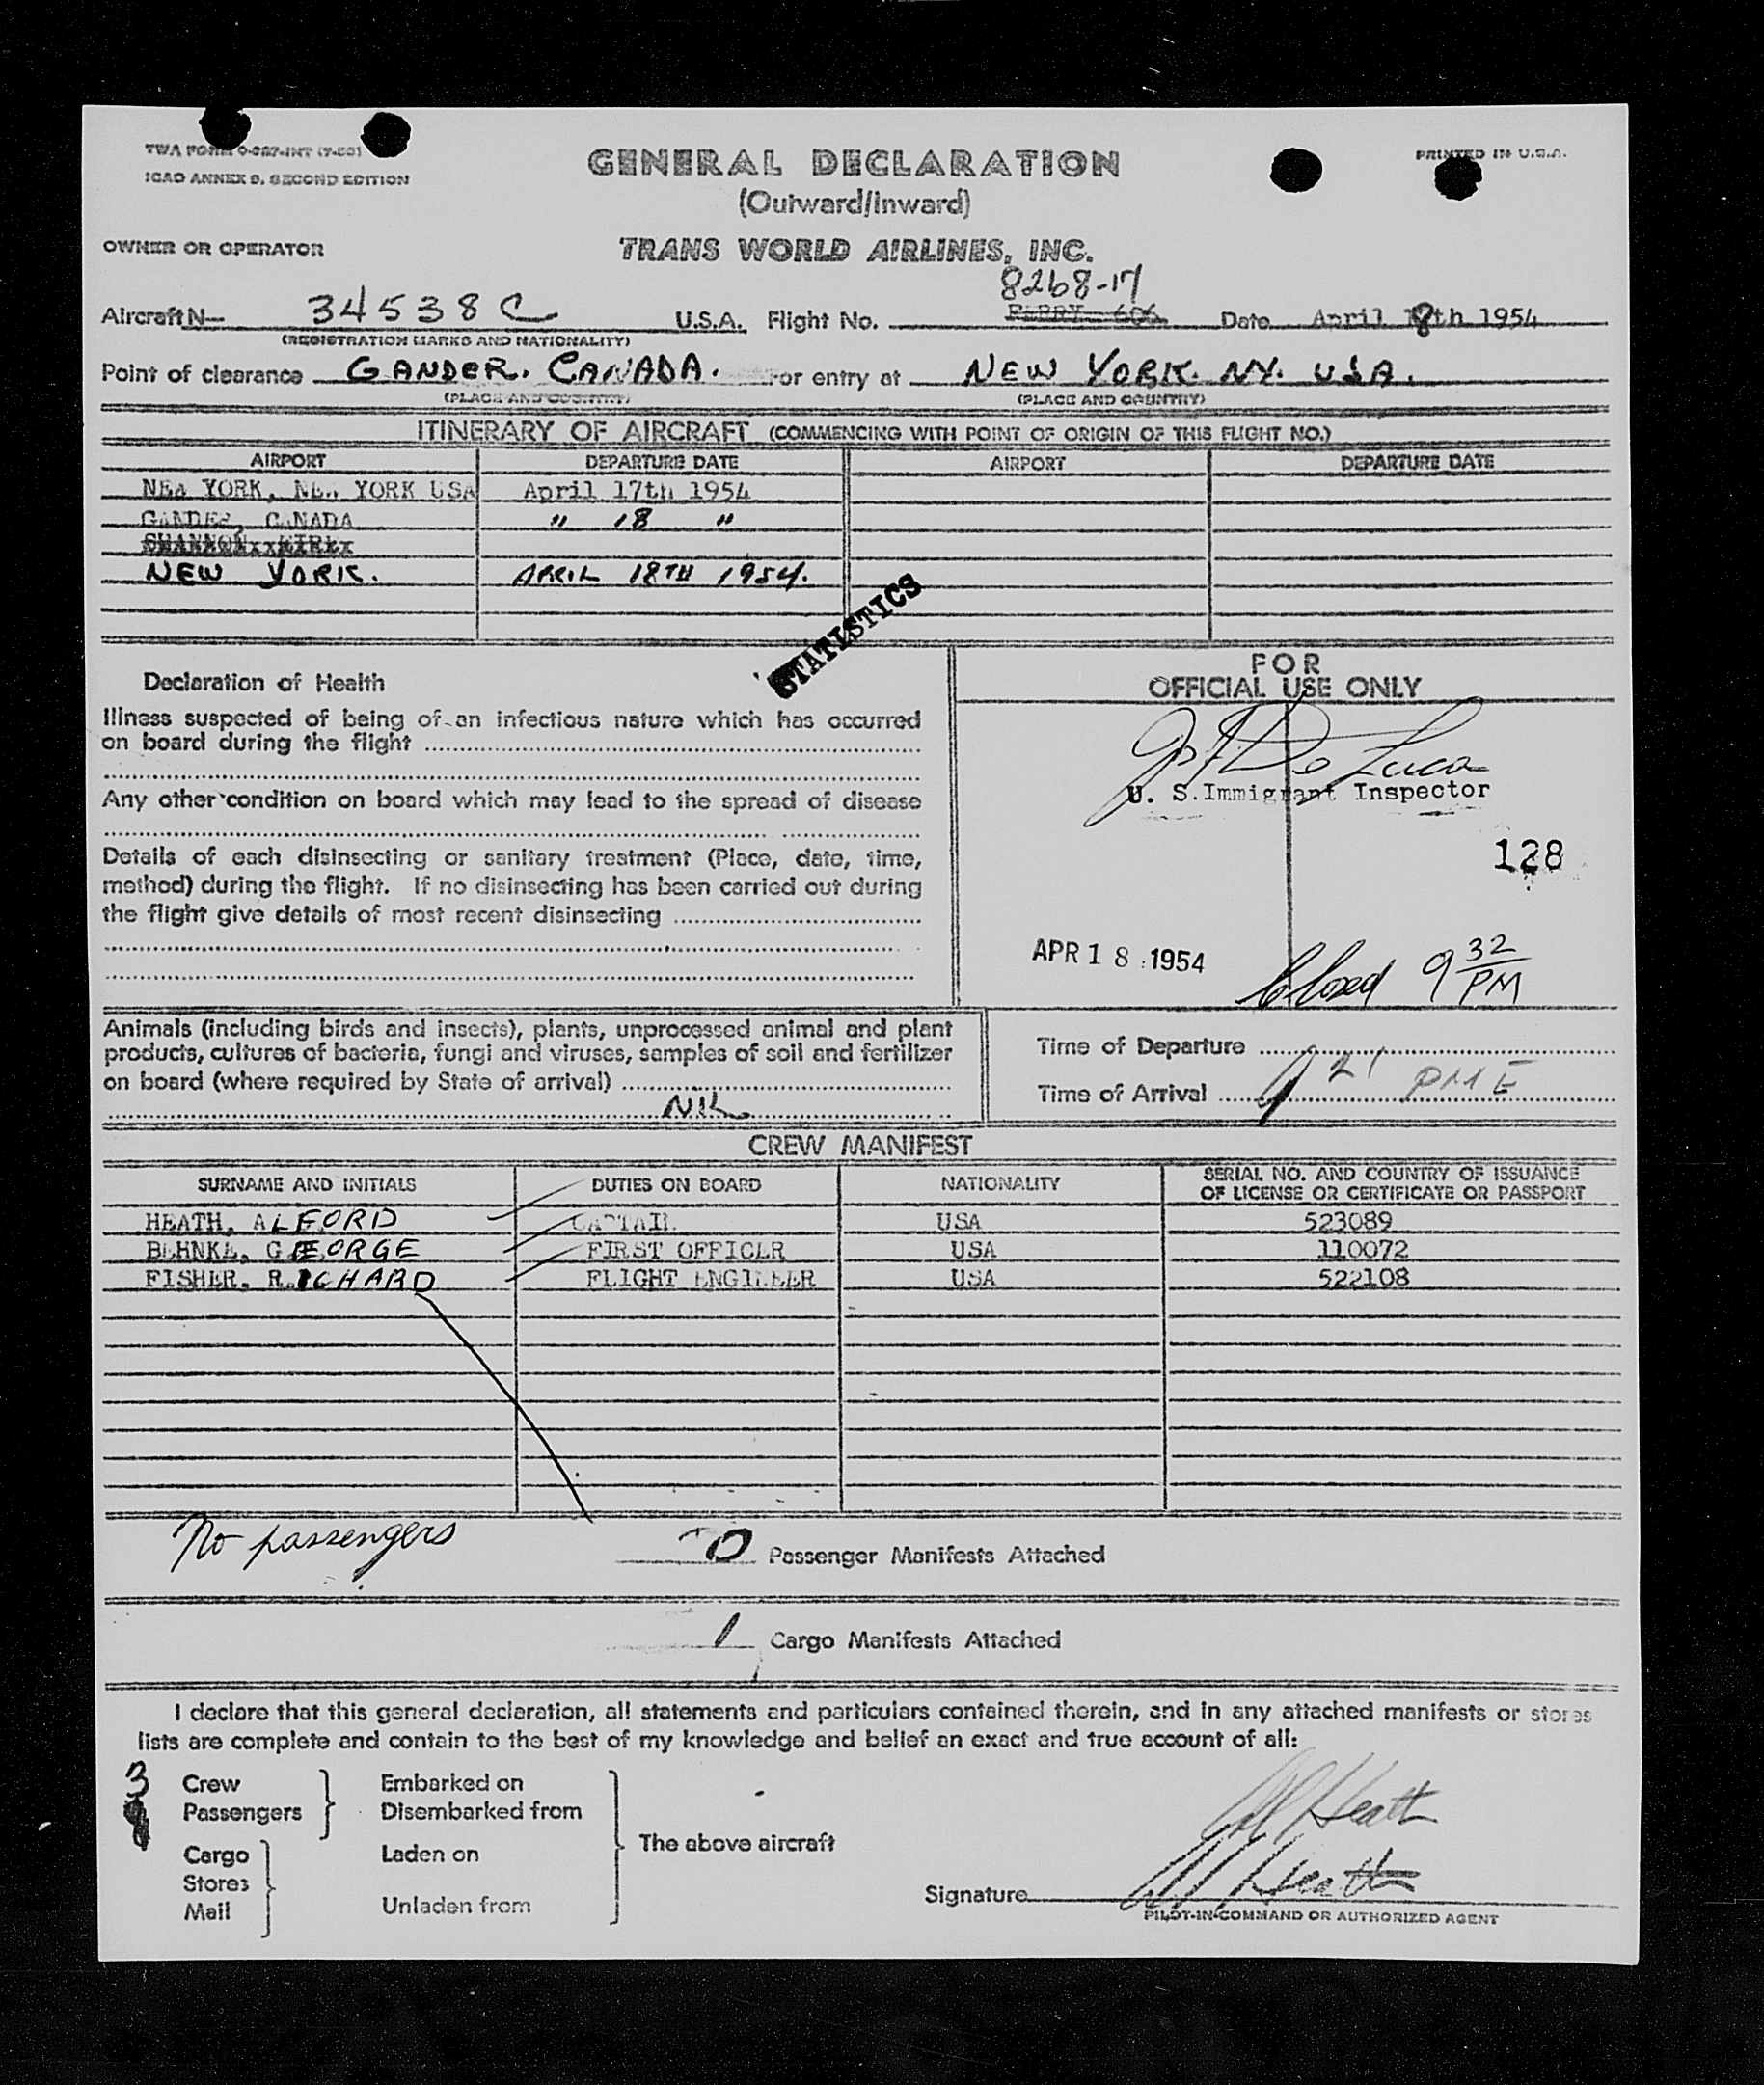 TWA FORM O-927-INT (7-50)
ICAO ANNEX 9, SECOND EDITION
PRINTED IN U.S.A.
GENERAL DECLARATION
(Outward/Inward)
OWNER OR OPERATOR TRANS WORLD AIRLINES, INC.
8268-17
Aircraft N— 34538C U.S.A. Flight No. FERRY 606 Date April 18th 1954
(REGISTRATION MARKS AND NATIONALITY)
Point of clearance GANDER. CANADA. For entry at NEW YORK. NY. USA.
(PLACE AND COUNTRY) (PLACE AND COUNTRY)
ITINERARY OF AIRCRAFT (COMMENCING WITH POINT OF ORIGIN OF THIS FLIGHT NO.)
AIRPORT DEPARTURE DATE AIRPORT DEPARTURE DATE
NEW YORK, NEW YORK USA April 17th 1954
GANDER, CANADA " 18 "
SHANNON, EIRE
NEW YORK. APRIL 18TH 1954.
STATISTICS
Declaration of Health
Illness suspected of being of an infectious nature which has occurred
on board during the flight
Any other condition on board which may lead to the spread of disease
Details of each disinsecting or sanitary treatment (Place, date, time,
method) during the flight. If no disinsecting has been carried out during
the flight give details of most recent disinsecting
FOR
OFFICIAL USE ONLY
De Luca
U. S. Immigrant Inspector
128
APR 18 1954
Closed 9 32 PM
Animals (including birds and insects), plants, unprocessed animal and plant
products, cultures of bacteria, fungi and viruses, samples of soil and fertilizer
on board (where required by State of arrival)
NIL
Time of Departure
Time of Arrival 9 21 PM E
CREW MANIFEST
SURNAME AND INITIALS DUTIES ON BOARD NATIONALITY SERIAL NO. AND COUNTRY OF ISSUANCE
OF LICENSE OR CERTIFICATE OR PASSPORT
HEATH, ALFORD CAPTAIN USA 523089
BEHNKE, GEORGE FIRST OFFICER USA 110072
FISHER, RICHARD FLIGHT ENGINEER USA 522108
No passengers
0 Passenger Manifests Attached
1 Cargo Manifests Attached
I declare that this general declaration, all statements and particulars contained therein, and in any attached manifests or stores
lists are complete and contain to the best of my knowledge and belief an exact and true account of all:
3 Crew Embarked on
Passengers Disembarked from
The above aircraft
Cargo Laden on
Stores
Mail Unladen from
Heath
Signature Heath
PILOT-IN-COMMAND OR AUTHORIZED AGENT